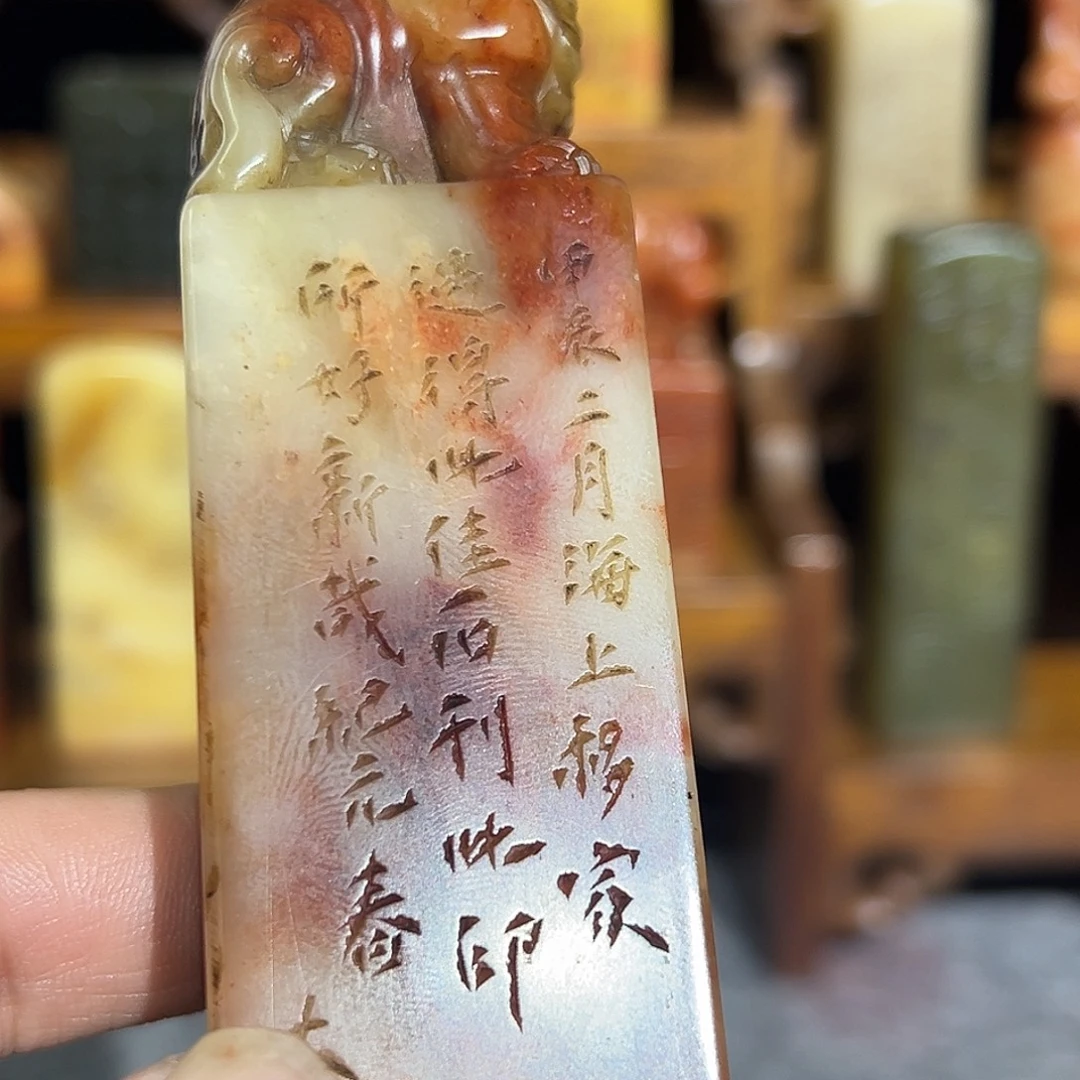 甲辰二月海上移家
遂得此佳石利此印
所好新哉紀元春